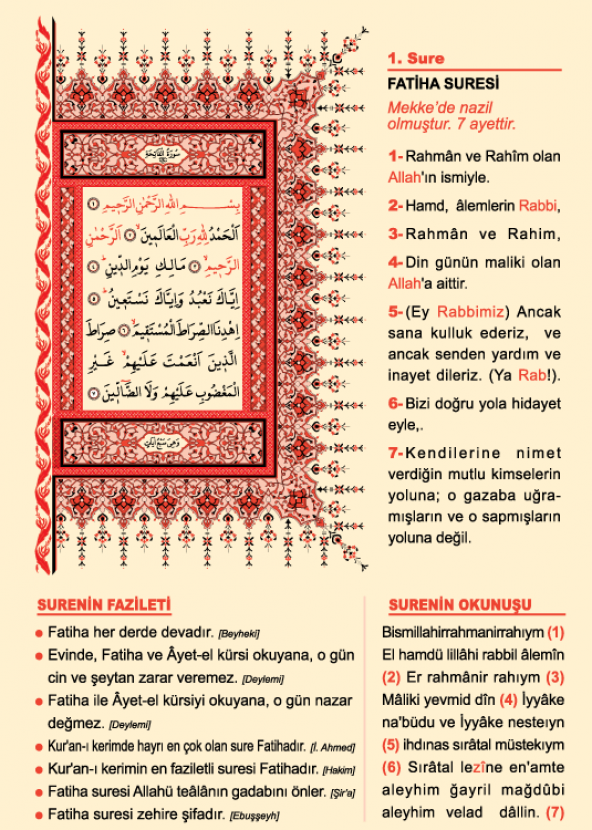 سُورَةُ الْفَاتِحَةِ
بِسْــــمِ اللّٰهِ الرَّحْمٰنِ الرَّح۪يمِ ١
اَلْحَمْدُ لِلّٰهِ رَبِّ الْعَالَم۪ينَ ٢ اَلرَّحْمٰنِ
الرَّح۪يمِ ٣ مَالِكِ يَوْمِ الدّ۪ينِ ٤
اِيَّاكَ نَعْبُدُ وَاِيَّاكَ نَسْتَع۪ينُ ٥
اِهْدِنَا الصِّرَاطَ الْمُسْتَق۪يمَ ٦ صِرَاطَ
الَّذ۪ينَ اَنْعَمْتَ عَلَيْهِمْ غَيْرِ
الْمَغْضُوبِ عَلَيْهِمْ وَلَا الضَّٓالّ۪ينَ ٧
وَهِيَ سَبْعُ اٰيَاتٍ
1. Sure
FATİHA SURESİ
Mekke’de nazil
olmuştur. 7 ayettir.
1- Rahmân ve Rahîm olan
Allah'ın ismiyle.
2- Hamd, âlemlerin Rabbi,
3- Rahmân ve Rahim,
4- Din günün maliki olan
Allah'a aittir.
5- (Ey Rabbimiz) Ancak
sana kulluk ederiz, ve
ancak senden yardım ve
inayet dileriz. (Ya Rab!).
6- Bizi doğru yola hidayet
eyle,.
7- Kendilerine nimet
verdiğin mutlu kimselerin
yoluna; o gazaba uğra-
mışların ve o sapmışların
yoluna değil.
SURENİN FAZİLETİ
• Fatiha her derde devadır. [Beyheki]
• Evinde, Fatiha ve Âyet-el kürsi okuyana, o gün
cin ve şeytan zarar veremez. [Deylemi]
• Fatiha ile Âyet-el kürsiyi okuyana, o gün nazar
değmez. [Deylemi]
• Kur'an-ı kerimde hayrı en çok olan sure Fatihadır. [İ. Ahmed]
• Kur'an-ı kerimin en faziletli suresi Fatihadır. [Hakim]
• Fatiha suresi Allahü teâlânın gadabını önler. [Şir'a]
• Fatiha suresi zehire şifadır. [Ebuşşeyh]
SURENİN OKUNUŞU
Bismillahirrahmanirrahıym (1)
El hamdü lillâhi rabbil âlemîn
(2) Er rahmânir rahıym (3)
Mâliki yevmid dîn (4) İyyâke
na'büdu ve İyyâke nesteıyn
(5) ihdınas sırâtal müstekıym
(6) Sırâtal lezîne en'amte
aleyhim ğayril mağdûbi
aleyhim velad dâllin. (7)